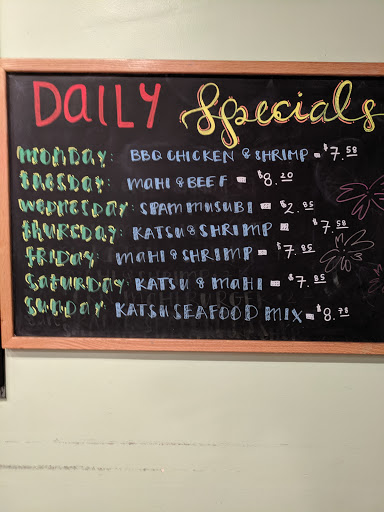 DAILY Specials
MONDAY: BBQ CHICKEN & SHRIMP = $7.58
TUESDAY: MAHI & BEEF = $8.20
WEDNESDAY: SPAM MUSUBI = $2.85
THURSDAY: KATSU & SHRIMP = $7.58
FRIDAY: MAHI & SHRIMP = $7.85
SATURDAY: KATSU & MAHI = $7.85
SUNDAY KATSU SEAFOOD MIX = $8.78